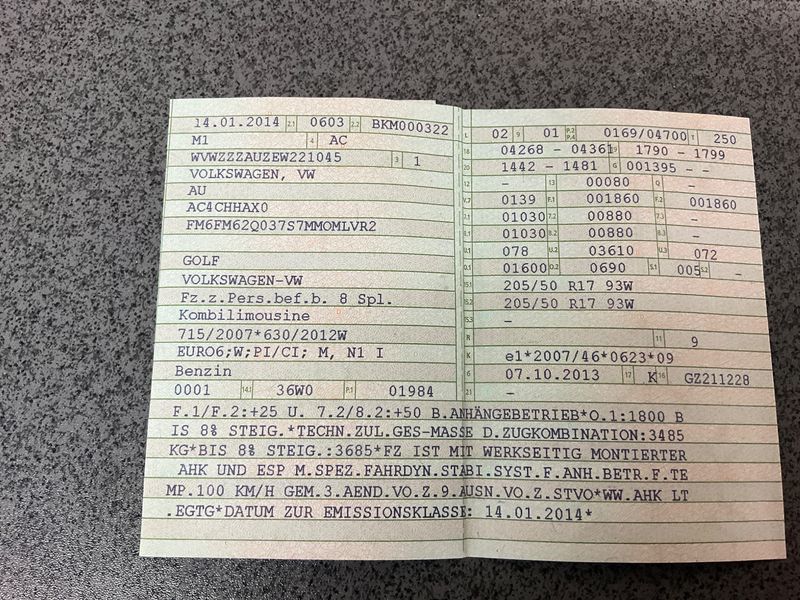 14.01.2014 2.1 0603 2.2 BKM000322
M1 4 AC
WVWZZZAUZEW221045 3 1
VOLKSWAGEN, VW
AU
AC4CHHAX0
FM6FM62Q037S7MMOMLVR2
GOLF
VOLKSWAGEN-VW
Fz.z.Pers.bef.b. 8 Spl.
Kombilimousine
715/2007*630/2012W
EURO6;W;PI/CI; M, N1 I
Benzin
0001 14.1 36W0 P.1 01984
L 02 9 01 P.2 P.4 0169/04700 T 250
18 04268 - 04361 19 1790 - 1799
20 1442 - 1481 G 001395 - -
12 - 13 00080 Q -
V.7 0139 F.1 001860 F.2 001860
7.1 01030 7.2 00880 7.3 -
8.1 01030 8.2 00880 8.3 -
U.1 078 U.2 03610 U.3 072
O.1 01600 O.2 0690 S.1 005 S.2 -
15.1 205/50 R17 93W
15.2 205/50 R17 93W
15.3 -
R 11 9
K e1*2007/46*0623*09
6 07.10.2013 17 K 16 GZ211228
21 -
F.1/F.2:+25 U. 7.2/8.2:+50 B.ANHÄNGEBETRIEB*O.1:1800 B
IS 8% STEIG.*TECHN.ZUL.GES-MASSE D.ZUGKOMBINATION:3485
KG*BIS 8% STEIG.:3685*FZ IST MIT WERKSEITIG MONTIERTER
AHK UND ESP M.SPEZ.FAHRDYN.STABI.SYST.F.ANH.BETR.F.TE
MP.100 KM/H GEM.3.AEND.VO.Z.9.AUSN.VO.Z.STVO*WW.AHK LT
.EGTG*DATUM ZUR EMISSIONSKLASSE: 14.01.2014*